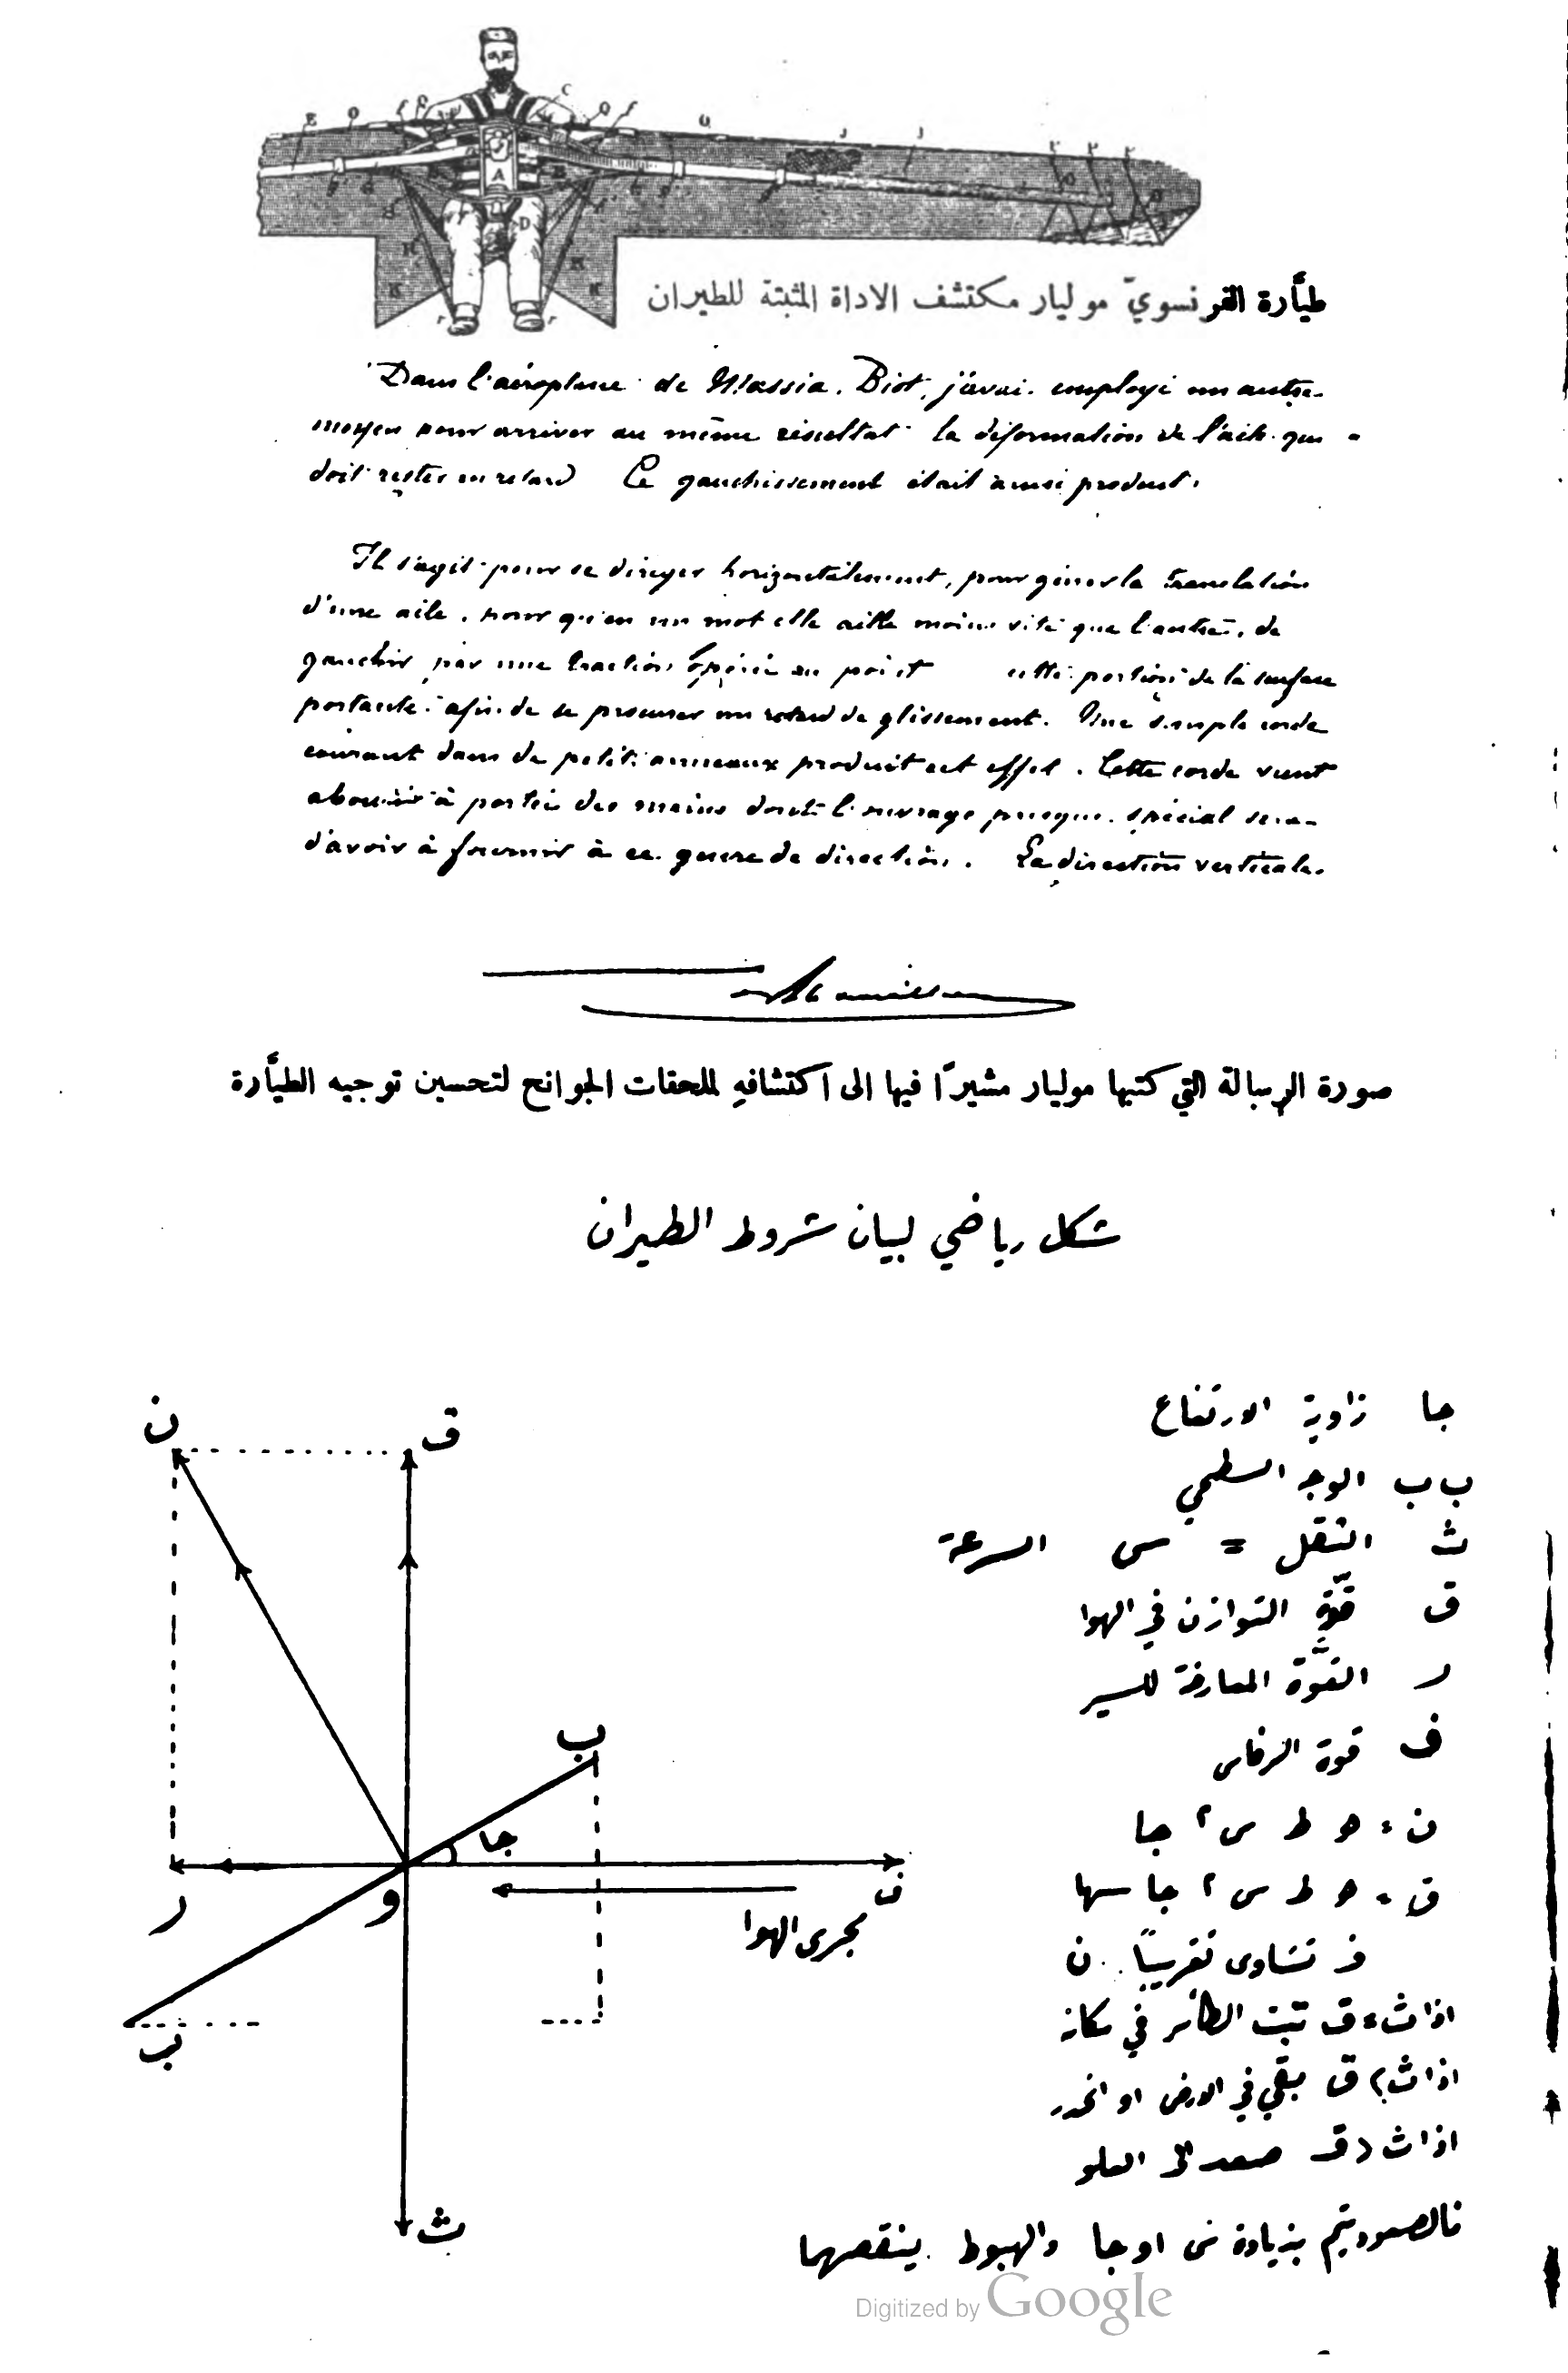 طيَّارة الفرنسويّ موليار مكتشف الاداة المثبتة للطيران
Dans l'aéroplane de Massia. Biot, j'avai employé un autre
moyen pour arriver au même résultat la déformation de l'aile qui
doit rester en retard Ce gauchissement était ainsi produit.
Il s'agit pour se diriger horizontalement, pour gêner la translation
d'une aile, pour qu'en un mot elle aille moins vite que l'autre, de
gauchir par une traction opérée au point cette portion de la surface
portante afin de se procurer un retard de glissement. Une simple corde
courant dans de petits anneaux produit cet effet. Cette corde vient
aboutir à portée des mains dont l'ouvrage presque spécial sera
d'avoir à fournir à ce genre de direction. La direction verticale
صورة الرسالة التي كتبها موليار مشيرًا فيها الى اكتشافهِ للمحقات الجوانح لتحسين توجيه الطيَّارة
شكل رياضي لبيان شروط الطيران
ن
ق
ب
جا
و
ر
ف
مجرى الهوا
ب
ث
جا زاوية الارتفاع
ب ب الوجه السطحي
ث الثقل = س السرعة
ق قوّة التوازن في الهوا
ر القوَّة المعارضة للسير
ف قوة الرفاس
ن = ه ط س٢ جا
ق = ه ط س٢ جا سها
ف تساوى تقريبًا ن
اذا ث = ق تثبت الطائر في مكانه
اذا ث > ق بقي في الارض او انحدر
اذا ث < ق صعد الى العلو
فالصعود يتم بزيادة س او جا والهبوط ينقصهما
Digitized by Google